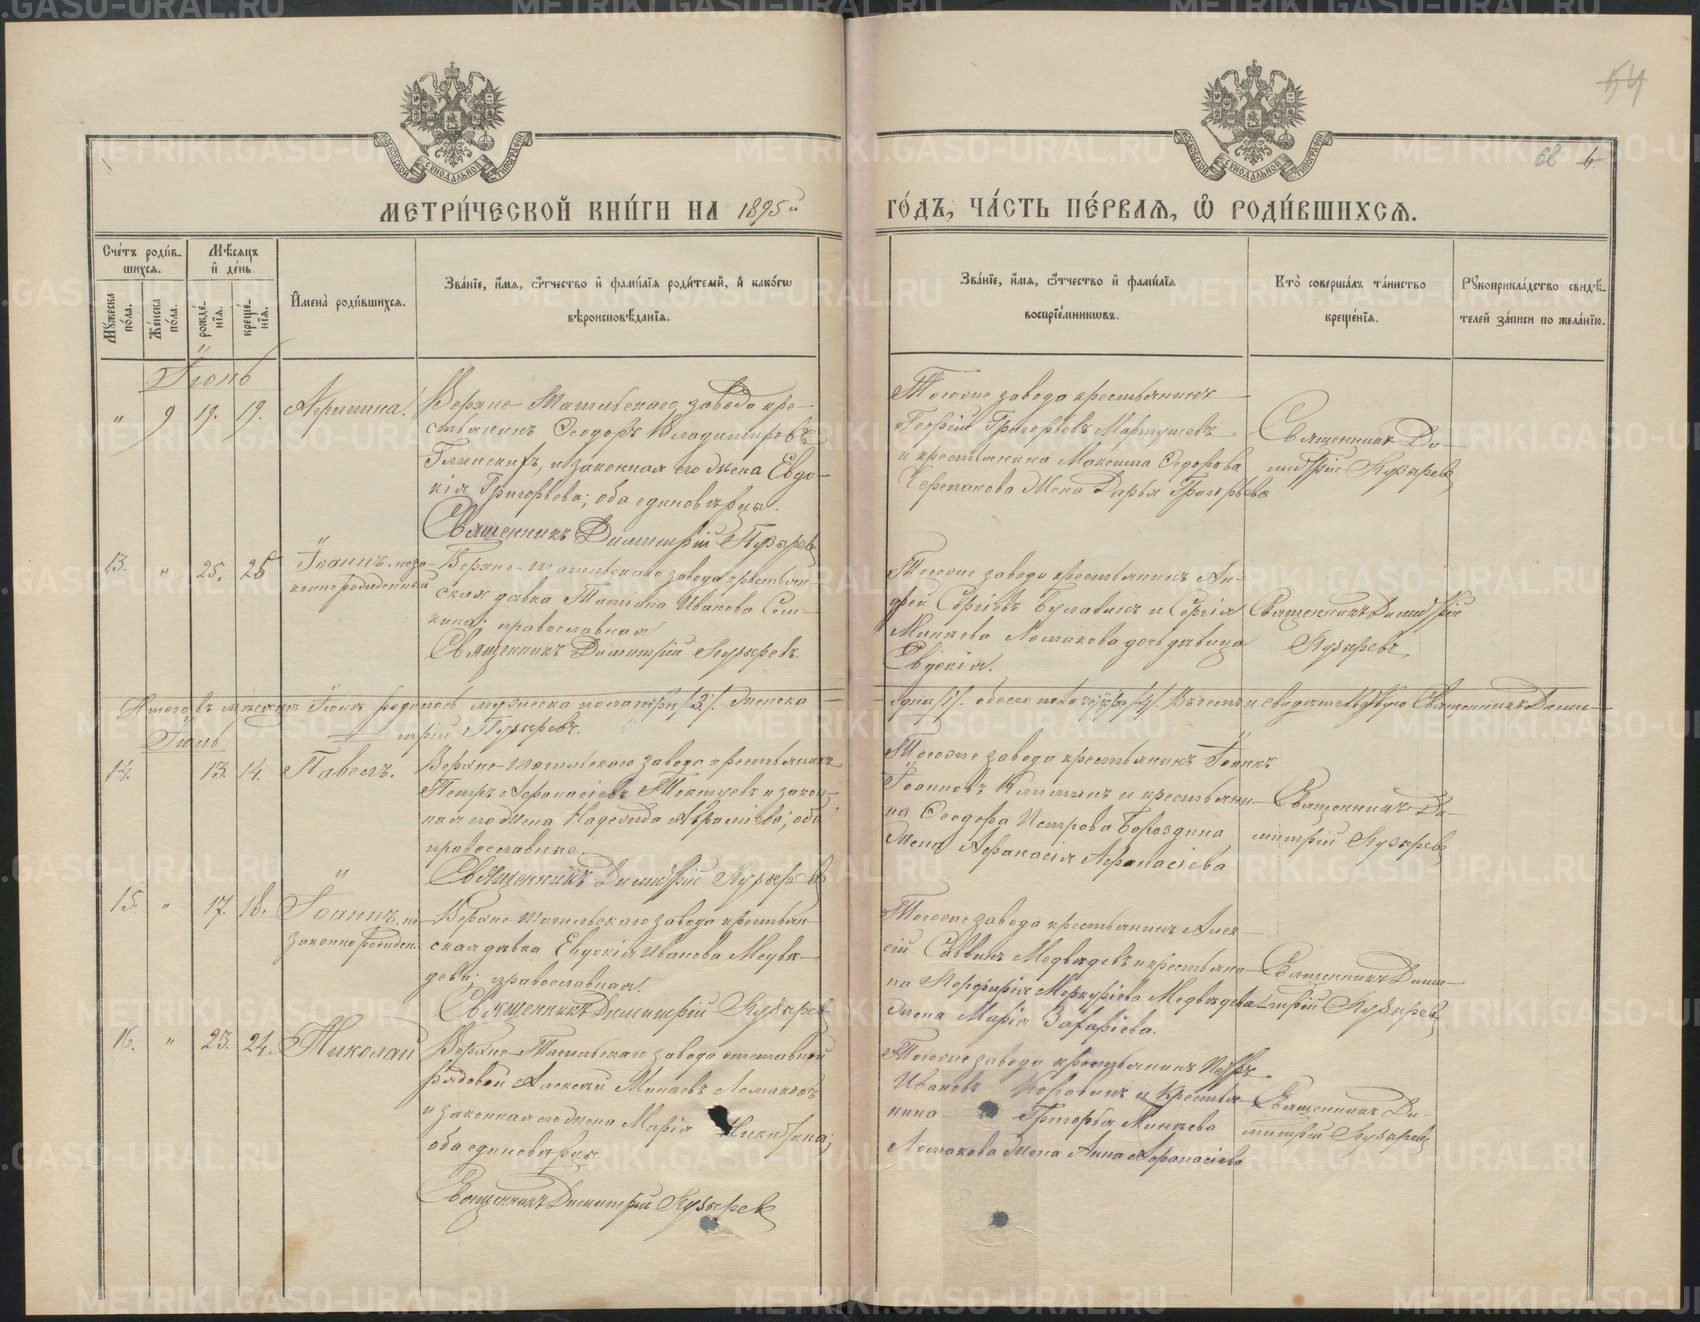 54
68
МОСКОВСКОЙ СѴНОДАЛЬНОЙ ТИПОГРАФІИ
МОСКОВСКОЙ СѴНОДАЛЬНОЙ ТИПОГРАФІИ
МЕТРИ́ЧЕСКОЙ КНИ́ГИ НА 1895й
ГО́ДЪ, ЧА́СТЬ ПЕ́РВАЯ, Ѡ РОДИ́ВШИХСЯ.
Сче́тъ роди́в-
шихся.
Мѣ́сяцъ
и҆ де́нь
Мꙋжеска по́ла.
Же́нска по́ла.
рожде́-
нїя.
креще́-
нїя.
И҆мена̀ роди́вшихся.
Зва́нїе, и҆́мя, ѻ҆́тчество и҆ фами́лїя роди́телей, и҆ како́гѡ
вѣроисповѣ́данїя.
Зва́нїе, и҆́мя, ѻ҆́тчество и҆ фами́лїя
воспрїе́мникѡвъ.
Кто̀ соверша́лъ та́инство
креще́нїя.
Рꙋкоприкла́дство свидѣ́-
телей за́писи по жела́нїю.
Іюнь
" 9 19. 19. Агрипина.
Верхне-Тагильскаго завода кре-
стьянинъ Ѳеодоръ Владимировъ
Глинскихъ, и законная его жена Евдо-
кія Григорьева; оба единовѣрцы.
Священникъ Димитрій Пузыревъ
Тогоже завода крестьянинъ
Георгій Григорьевъ Мартушевъ
и крестьянина Максима Ѳедорова
Черепанова жена Дарья Григорьева
Священникъ Ди-
митрій Пузыревъ
13. " 25. 25 Іоаннъ неза-
коннорожденный
Верхне-Тагильскаго завода крестьян-
ская дѣвка Татіана Иванова Сем-
кина; православная
Священникъ Димитрій Пузыревъ.
Тогоже завода крестьянинъ Ан-
дрей Сергіевъ Булавинъ и Сергія
Минѣева Ломакова дочь дѣвица
Евдокія.
Священникъ Димитрій
Пузыревъ
Итого въ мѣсяцѣ Іюнѣ родилось мужеска пола три /3/. женска
одна /1/. обоего пола четыре /4/. Въ семъ и свидѣтельствую Священникъ Дими-
трій Пузыревъ.
Іюль
14. 13. 14. Павелъ.
Верхне-Тагильскаго завода крестьянинъ
Петръ Аѳанасіевъ Токтуевъ и закон-
ная его жена Надежда Авраміева; оба
православные.
Священникъ Димитрій Пузыревъ
Тогоже завода крестьянинъ Іоаннъ
Іоанновъ Климинъ и крестьяни-
на Ѳеодора Петрова Бороздина
жена Аѳанасія Аѳанасіева
Священникъ Ди-
митрій Пузыревъ
15. " 17. 18. Іоаннъ не-
законнорожден.
Верхне-Тагильскаго завода крестьян-
ская дѣвка Евдокія Иванова Медвѣ-
дева; православная.
Священникъ Димитрій Пузыревъ
Тогоже завода крестьянинъ Алек-
сѣй Саввинъ Медвѣдевъ и крестьяни-
на Порфирія Меркурьева Медвѣдева
жена Марія Захаріева.
Священникъ Дими-
трій Пузыревъ
16. " 23. 24. Николай
Верхне-Тагильскаго завода отставной
рядовой Алексѣй Минѣевъ Ломаковъ
и законная его жена Марія Никитина;
оба единовѣрцы.
Священникъ Димитрій Пузыревъ
Тогоже завода крестьянинъ Петръ
Ивановъ Коровинъ и крестья-
нина Григорья Минѣева
Ломакова жена Анна Аѳанасіева
Священникъ Ди-
митрій Пузыревъ
METRIKI.GASO-URAL.RU